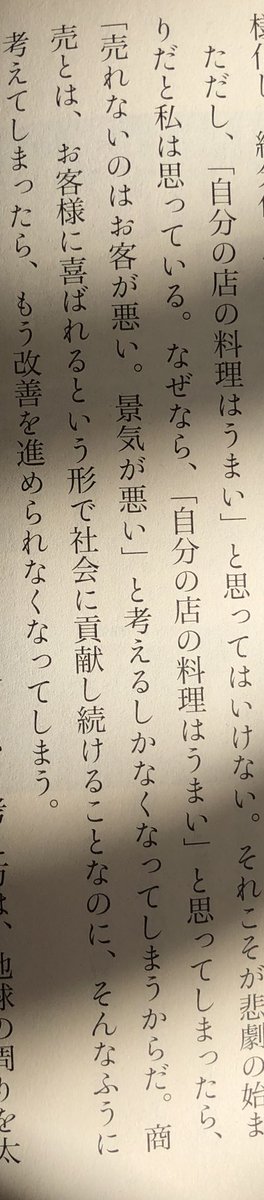 ただし、「自分の店の料理はうまい」と思ってはいけない。それこそが悲劇の始ま
りだと私は思っている。なぜなら、「自分の店の料理はうまい」と思ってしまったら、
「売れないのはお客が悪い。景気が悪い」と考えるしかなくなってしまうからだ。商
売とは、お客様に喜ばれるという形で社会に貢献し続けることなのに、そんなふうに
考えてしまったら、もう改善を進められなくなってしまう。
考え方は、地球の周りを太